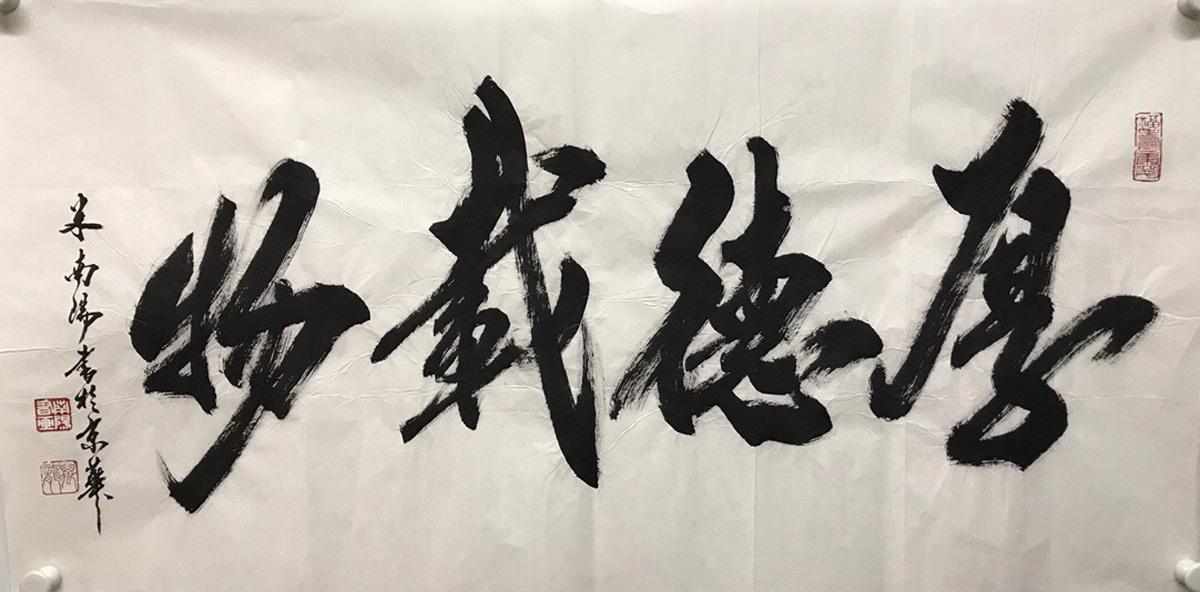 厚德載物
米南陽書於京華